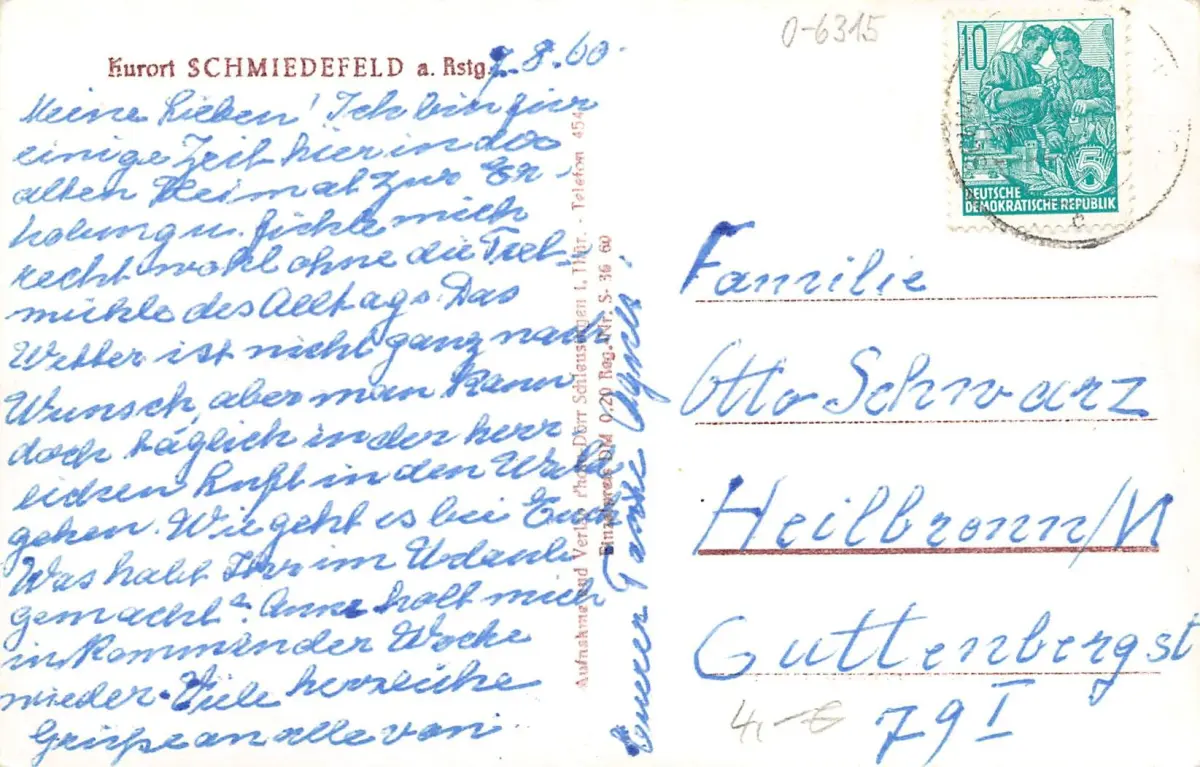 Kurort SCHMIEDEFELD a. Rstg.
7.8.60.
Meine Lieben! Ich bin für
einige Zeit hier in der
alten Heimat zur Er-
holung u. fühle mich
recht wohl ohne die Tret-
mühle des Alltags. Das
Wetter ist nicht ganz nach
Wunsch, aber man kann
doch täglich in der herr
lichen Luft in den Wald
gehen. Wie geht es bei Euch
Was habt Ihr im Urlaub
gemacht? holt mich
in kommender Woche
wieder. Viele herzliche
Grüße an alle von
Eurer Tante Agnes.
Aufnahme und Verlag Photo-Dörr Schleusingen i. Thür. - Telefon 454
Einzelpreis DM 0.20 Reg.-Nr. S- 36 60
0-6315
10
5
DEUTSCHE
DEMOKRATISCHE REPUBLIK
c
Familie
Otto Schwarz
Heilbronn/N
Guttenbergst
79 I
4,- €